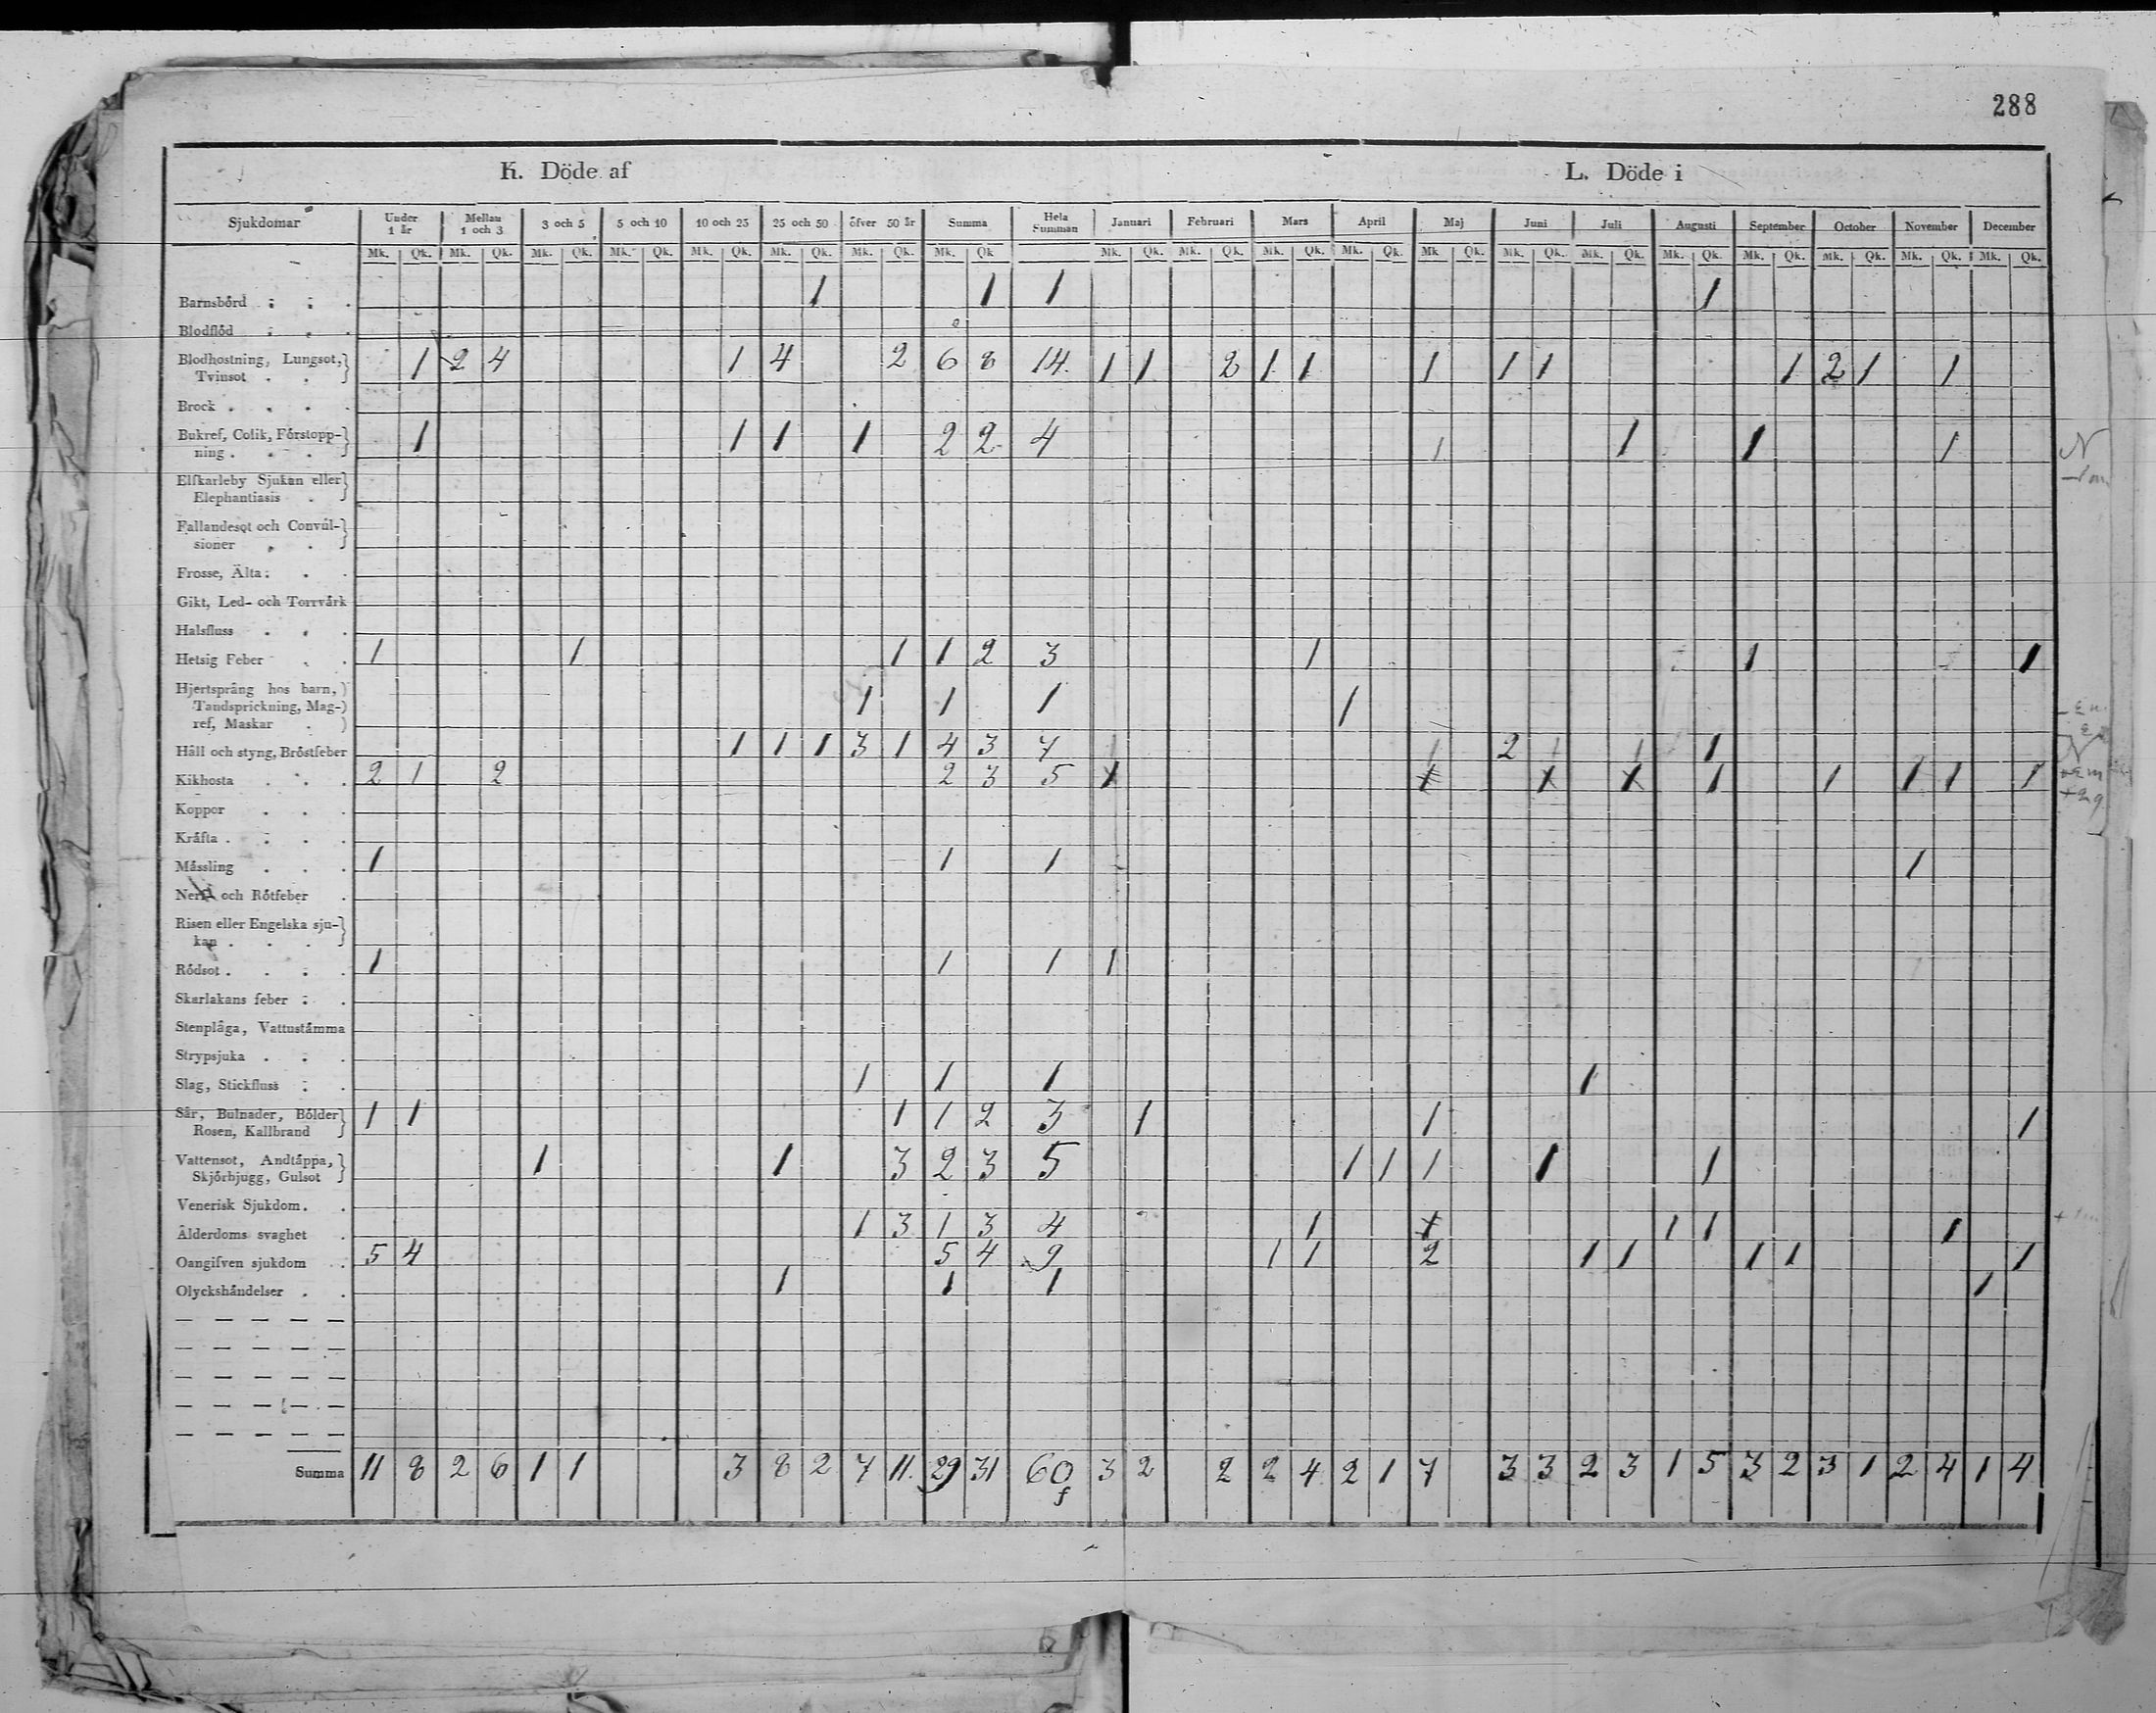 288
K. Döde af L. Döde i
Sjukdomar Under 1 år Mellan 1 och 3 3 och 5 5 och 10 10 och 25 25 och 50 öfver 50 år Summa Hela Summan Januari Februari Mars April Maj Juni Juli Augusti September October November December
Mk. Qk. Mk. Qk. Mk. Qk. Mk. Qk. Mk. Qk. Mk. Qk. Mk. Qk. Mk. Qk Mk. Qk. Mk. Qk. Mk. Qk. Mk. Qk. Mk Qk. Mk. Qk. Mk. Qk. Mk. Qk. Mk. Qk. Mk. Qk. Mk. Qk. Mk. Qk.
Barnsbörd 1 1 1 1
Blodflöd
Blodhostning, Lungsot, Tvinsot 1 2 4 1 4 2 6 8 14 1 1 2 1 1 1 1 1 1 2 1 1
Brock
Bukref, Colik, Förstoppning 1 1 1 1 2 2 4 1 1 1 1
Elfkarleby Sjukan eller Elephantiasis
Fallandesot och Convulsioner
Frosse, Älta
Gikt, Led- och Torrvärk
Halsfluss
Hetsig Feber 1 1 1 1 2 3 1 1 1
Hjertsprång hos barn, Tandsprickning, Magref, Maskar 1 1 1 1
Håll och styng, Bröstfeber 1 1 1 3 1 4 3 7 1 2 1 1 1
Kikhosta 2 1 2 2 3 5 1 1 1 1 1
Koppor
Kräfta
Mässling 1 1 1 1
Nerf- och Rötfeber
Risen eller Engelska sjukan
Rödsot 1 1 1 1
Skarlakans feber
Stenplåga, Vattustämma
Strypsjuka
Slag, Stickfluss 1 1 1 1
Sår, Bulnader, Bölder Rosen, Kallbrand 1 1 1 1 2 3 1 1 1
Vattensot, Andtäppa, Skjörbjugg, Gulsot 1 1 3 2 3 5 1 1 1 1 1
Venerisk Sjukdom
Ålderdoms svaghet 1 3 1 3 4 1 1 1 1
Oangifven sjukdom 5 4 5 4 9 1 1 2 1 1 1 1 1
Olyckshändelser 1 1 1 1
Summa 11 8 2 6 1 1 3 8 2 7 11 29 31 60 3 2 2 2 4 2 1 7 3 3 2 3 1 5 3 2 3 1 2 4 1 4